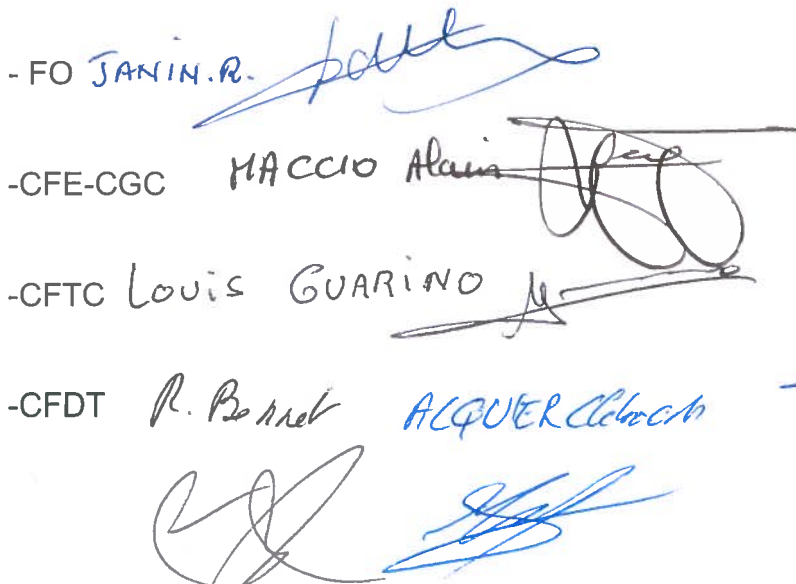 - FO JANIN.R.
-CFE-CGC MACCIO Alain
-CFTC LOUIS GUARINO
-CFDT R. Bonnet ACQUER